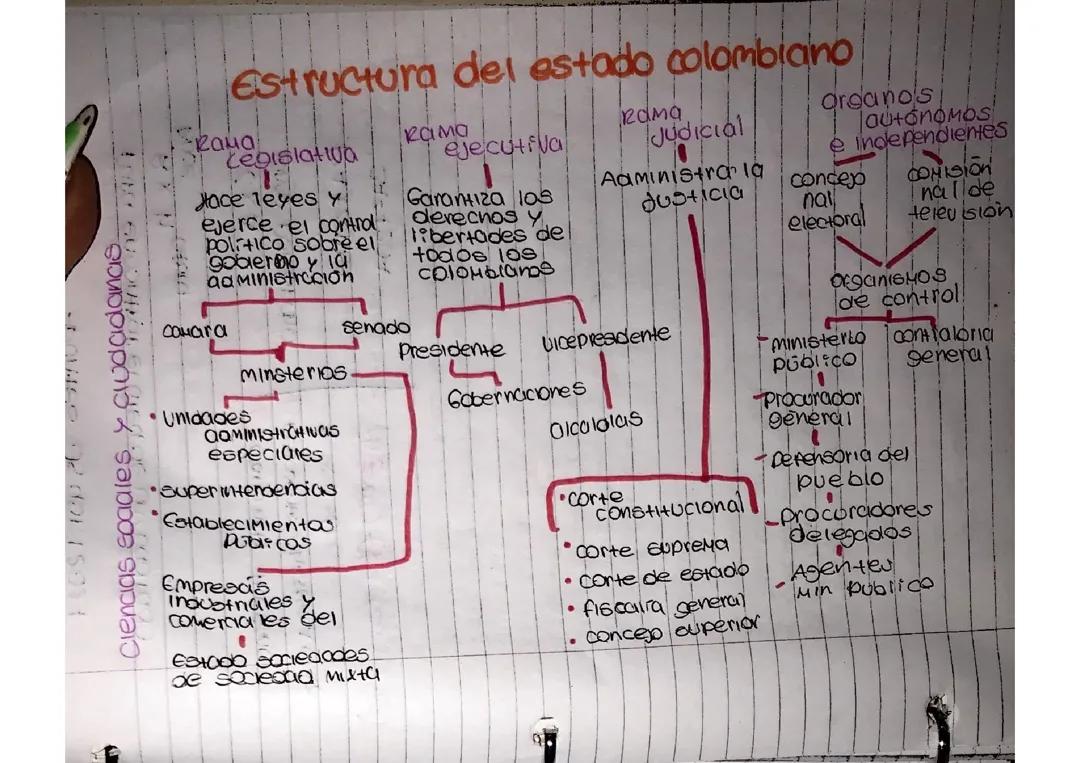 Estructura del estado colombiano
Rama
Legislativa
Hace leyes y
ejerce el control
político sobre el
gobierno y la
administración
camara
senado
minsterios
• Unidades
administrativas
especiales
• superintendencias
• Establecimientos
públicos
Empresas
industriales y
comerciales del
Estado sociedades
de sociedad mixta
Rama
ejecutiva
Garantiza los
derechos y
libertades de
todos los
colombianos
Presidente
vicepresidente
Gobernaciones
alcaldias
Rama
Judicial
Administrar la
justicia
• corte
constitucional
• corte suprema
• corte de estado
• fiscalra general
• concejo superior
organos
autónomos
e independientes
concejo
nal
electoral
comisión
nal de
television
organismos
de control
- ministerio
público
contraloria
general
- procurador
general
- Defensoria del
pueblo
- procuradores
delegados
- Agentes
Min publico
ciencias sociales y ciudadanas